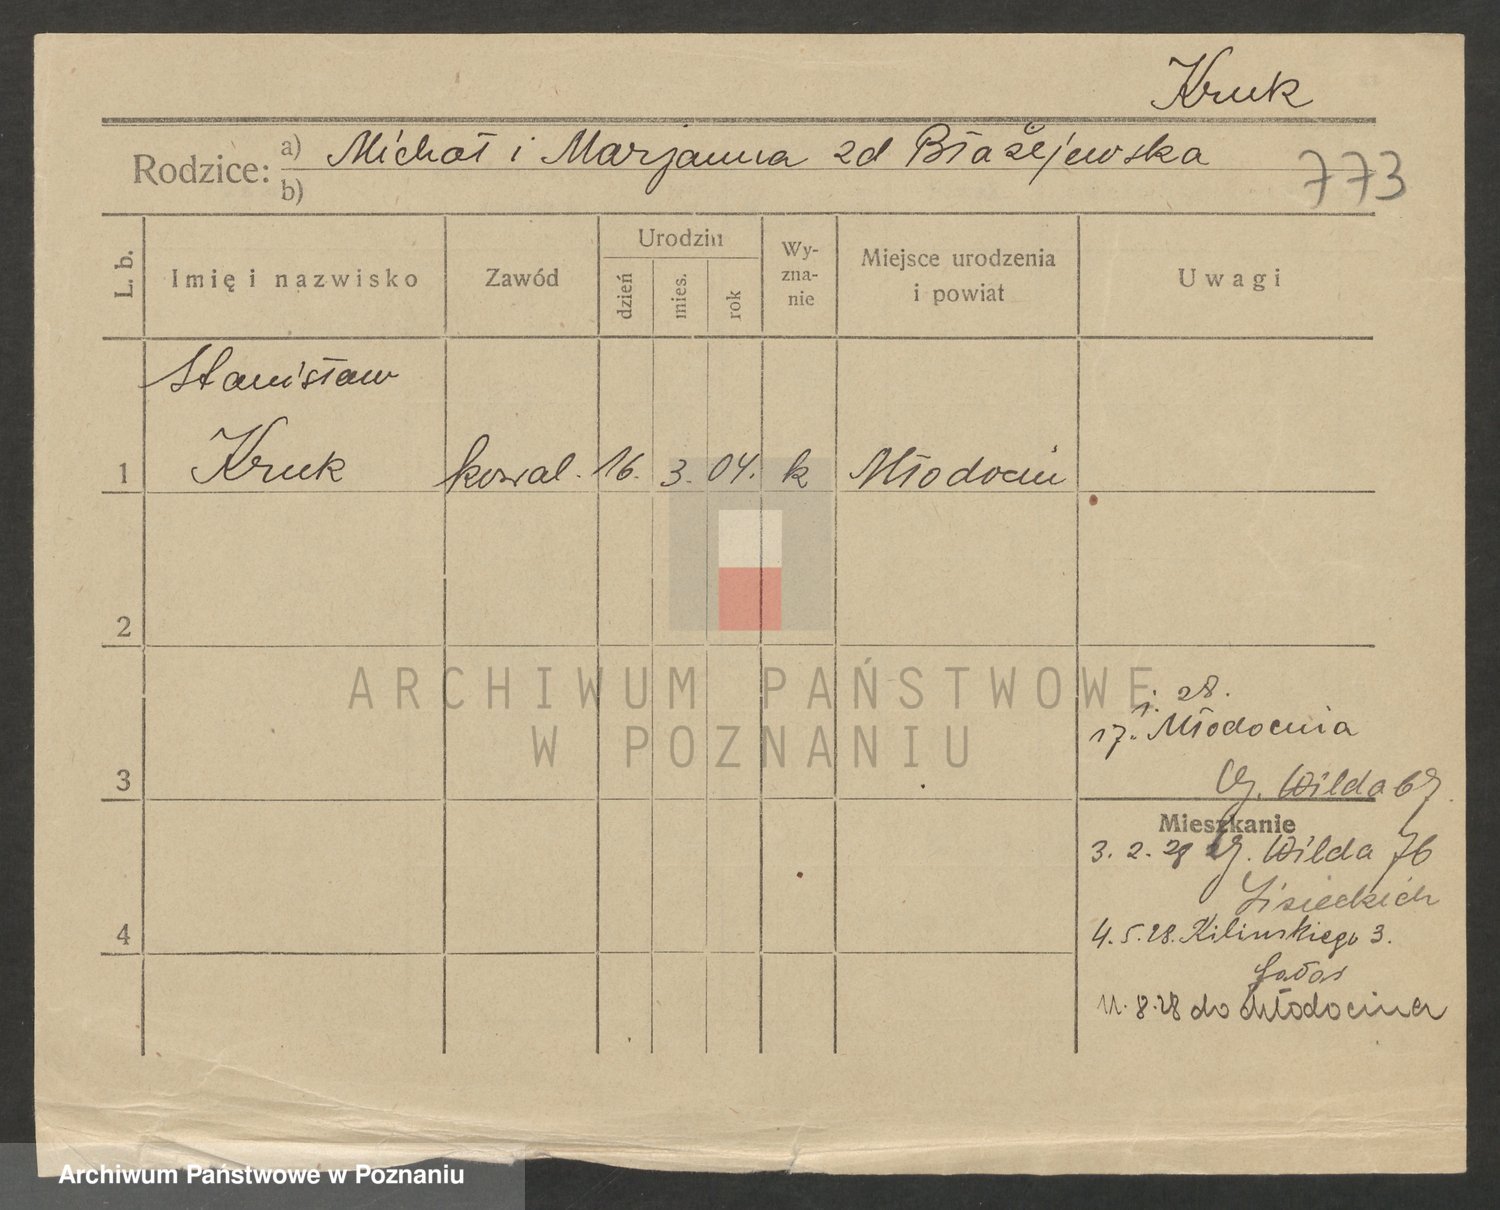 Kruk
Rodzice: a) Michał i Marjanna zd Błażejewska
b)
773
L. b.
Imię i nazwisko
Zawód
Urodzin
dzień
mies.
rok
Wy-
zna-
nie
Miejsce urodzenia
i powiat
Uwagi
Stanisław
1 Kruk kowal. 16. 3. 04. k Młodocin
2
3
4
1. 28.
17. Młodocina
G. Wilda 67
Mieszkanie
3. 2. 28 G. Wilda 76
Lisieckich
4. 5. 28. Kilinskiego 3.
11. 8. 28 do Młodocina
ARCHIWUM PAŃSTWOWE
W POZNANIU
Archiwum Państwowe w Poznaniu